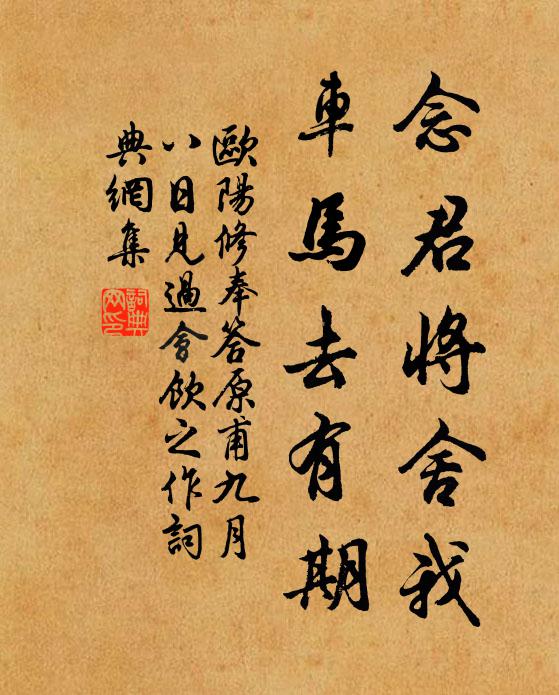 念君將舍我
車馬去有期
歐陽修奉答原甫九月
八日見過會飲之作詞
典網集
詞典网印